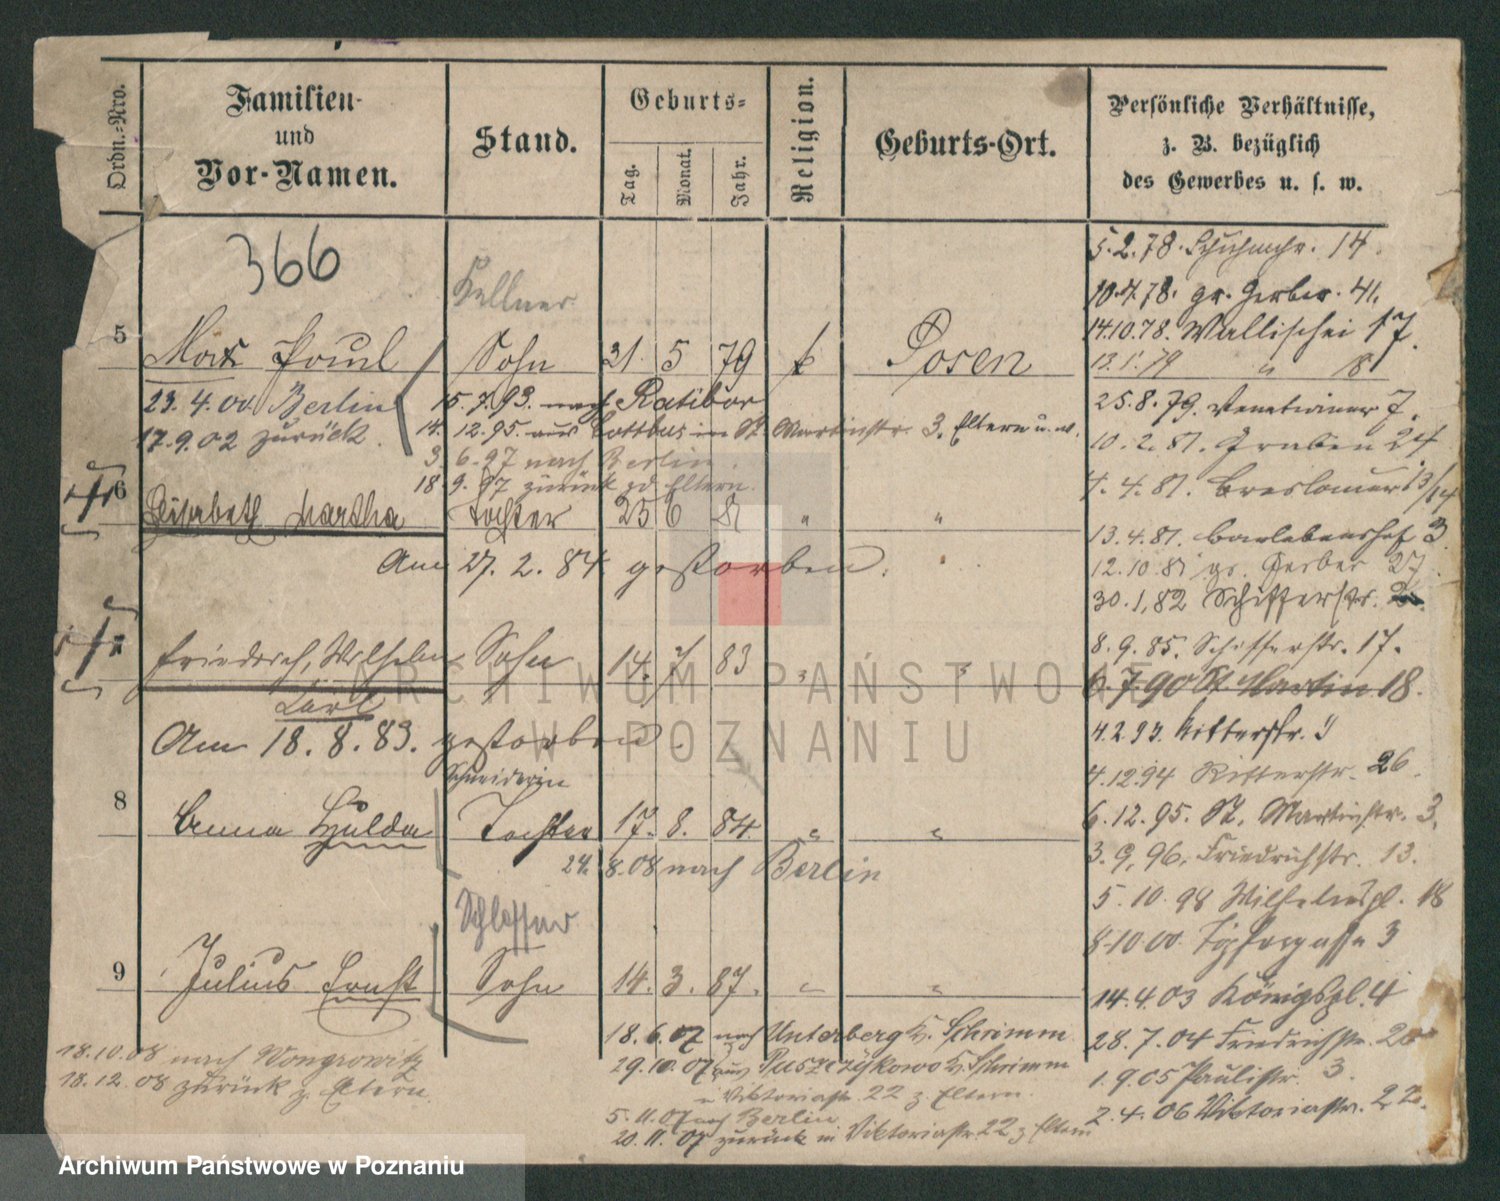 Ordn.=Nro.
Familien-
und
Vor-Namen.
Stand.
Geburts=
Tag.
Monat.
Jahr.
Religion.
Geburts-Ort.
Persönliche Verhältnisse,
z. B. bezüglich
des Gewerbes u. s. w.
366
Kellner
5 Max Paul Sohn 21 5 79 k Posen
23. 4. 00 Berlin
17. 9. 02 zurück.
15. 7. 93. nach Ratibor
14. 12. 95. aus Cottbus in St. Martinstr. 3. Eltern
3. 6. 97 nach Berlin.
18. 9. 97 zurück zd Eltern.
6 Elisabeth Martha Tochter 23 6 81 " "
Am 27. 2. 84 gestorben.
7 Friederich, Wilhelm Sohn 14. 7 83 " "
Carl
Am 18. 8. 83. gestorben.
Schneiderin
8 Anna Hulda Tochter 17. 8. 84. " "
24. 8. 08 nach Berlin
Schlosser
9 Julius Ernst Sohn 14. 3. 87. " "
18. 6. 07 nach Unterberg Kr. Schrimm
29. 10. 07 aus Puszczykowo Kr. Schrimm
in Viktoriastr. 22 z. Eltern.
5. 11. 07 nach Berlin
20. 11. 07 zurück in Viktoriastr. 22 z Eltern
18. 10. 08 nach Wongrowitz
18. 12. 08 zurück z. Eltern.
5. 2. 78. Schuhmchr. 14.
10. 4. 78. gr. Gerber. 41.
14. 10. 78. Wallischei 17.
13. 1. 79 " 8
25. 8. 79. Venetianer 7.
10. 2. 81. Graben 24
4. 4. 81. Breslauer 13/14
13. 4. 81. Barlebenshof 3
12. 10. 81 gr. Gerber 27
30. 1. 82 Schifferstr.
8. 9. 85. Schifferstr. 17.
6. 7 90 St. Martin 18.
4. 2. 93. Ritterstr.
4. 12. 94 Ritterstr. 26.
6. 12. 95. St. Martinstr. 3.
3. 9. 96. Friedrichstr. 13.
5. 10. 98 Wilhelmspl. 18
8. 10. 00. Töpfergasse 3
14. 4. 03 Königspl. 4
28. 7. 04 Friedrichstr. 20
1. 9. 05 Paulistr. 3.
2. 4. 06 Viktoriastr. 22.
ARCHIWUM PAŃSTWOWE
W POZNANIU
Archiwum Państwowe w Poznaniu